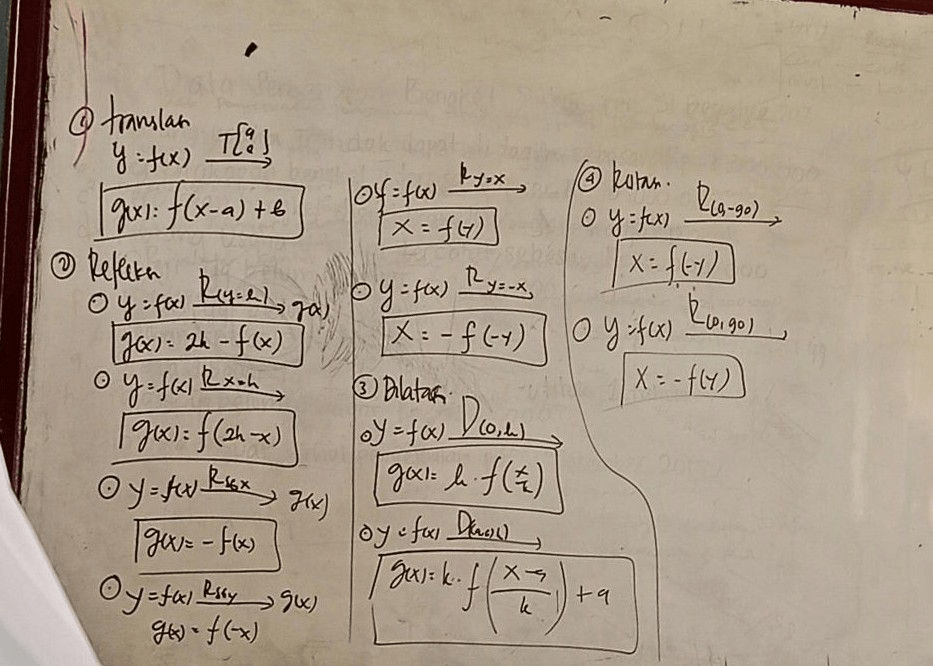 ① translasi
y = f(x) T[a a]→
g(x) = f(x-a) + b
② Refleksi
○ y = f(x) R(y=h)→ g(x)
g(x) = 2h - f(x)
○ y = f(x) R x=h→
g(x) = f(2h-x)
○ y = f(x) R sbx→ g(x)
g(x) = - f(x)
○ y = f(x) R sby→ g(x)
g(x) = f(-x)
○ y = f(x) R y=x→
X = f(y)
○ y = f(x) R y=-x→
X = - f(-y)
③ Dilatasi
○ y = f(x) D(0,k)→
g(x) = k . f(x/k)
○ y = f(x)
g(x) = k . f((x-a)/k) + a
④ Rotasi
○ y = f(x) R(0,-90)→
X = f(-y)
○ y = f(x) R(0,90)→
X = - f(y)